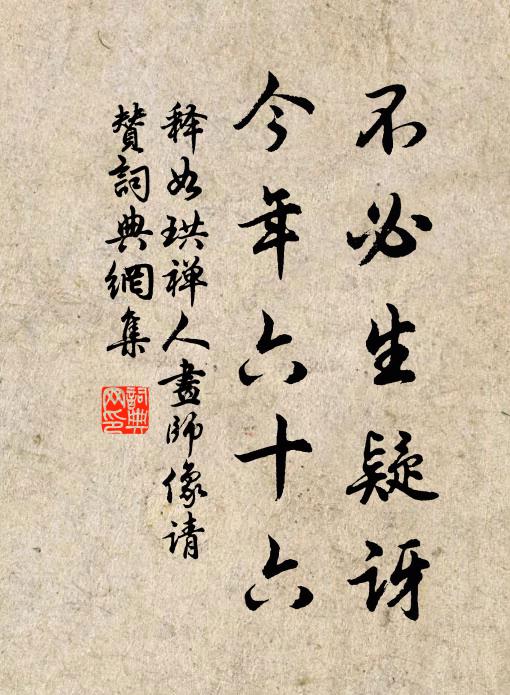 不必生疑讶
今年六十六
释如珙禅人畫师像请
賛詞典網集
詞典
网印